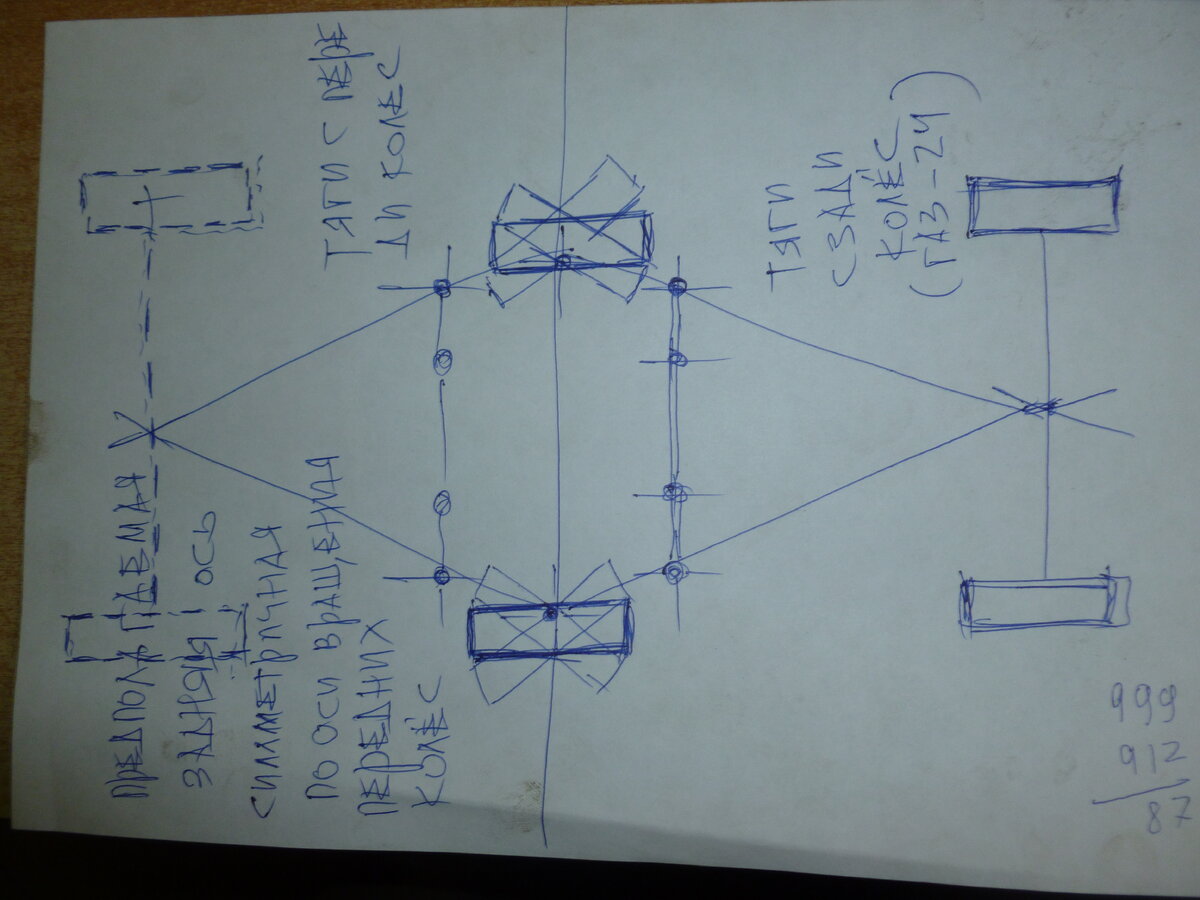 ТЯГИ С ПЕРЕ
ДИ КОЛЁС
ТЯГИ
СЗАДИ
КОЛЁС
(ГАЗ-24)
ПРЕДПОЛАГАЕМАЯ
ЗАДНЯЯ ОСЬ
СИММЕТРИЧНАЯ
ПО ОСИ ВРАЩЕНИЯ
ПЕРЕДНИХ
КОЛЁС
999
912
87